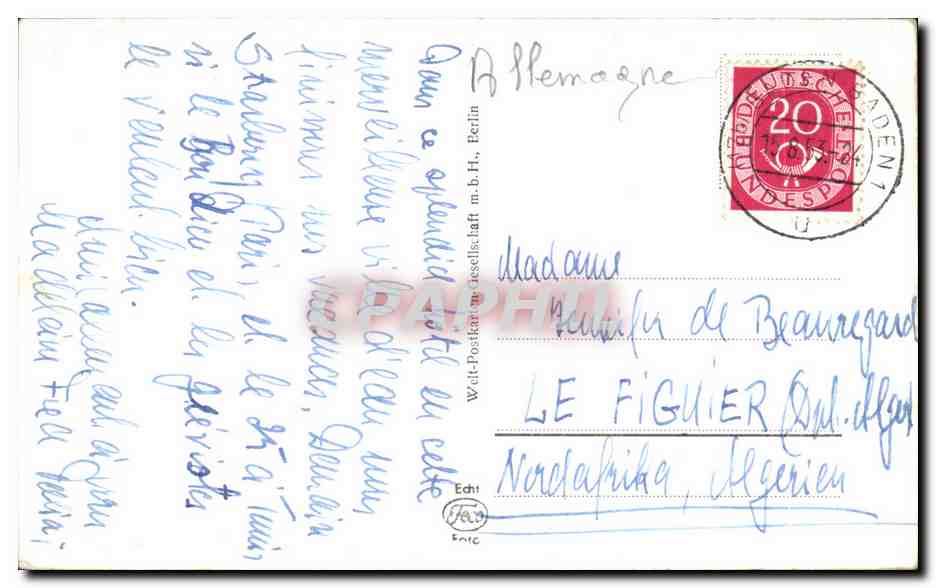 Dans ce splendide hôtel en cette
merveilleuse ville d'eau nous
finissons nos vacances, Demain
Starberg Paris et le 25 à Tunis
si le Bon Dieu et les grévistes
le veulent bien.
Allemagne
Welt-Postkarten-Gesellschaft m. b. H., Berlin
DEUTSCHE BUNDESPOST
20
BADEN 1
15.8.53
u
CPAPHIL
Madame
de Beauregard
LE FIGUIER (Dpt. Alger
Nordafrika, Algérien
Echt
Foto